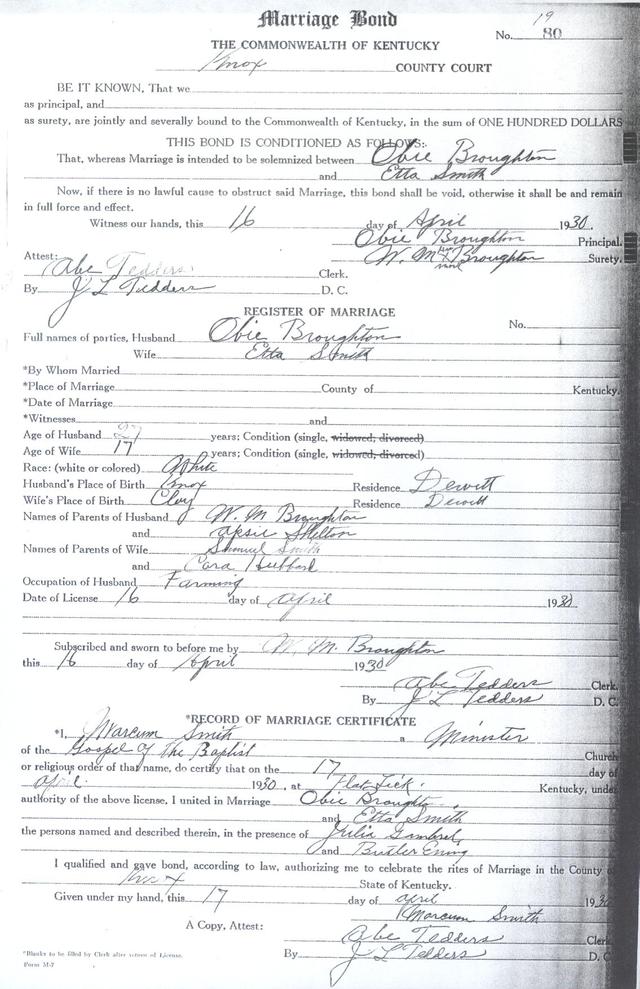 Marriage Bond
19
No. 80
THE COMMONWEALTH OF KENTUCKY
Knox COUNTY COURT
BE IT KNOWN, That we
as principal, and
as surety, are jointly and severally bound to the Commonwealth of Kentucky, in the sum of ONE HUNDRED DOLLARS
THIS BOND IS CONDITIONED AS FOLLOWS:
That, whereas Marriage is intended to be solemnized between Obie Broughton
and Etta Smith
Now, if there is no lawful cause to obstruct said Marriage, this bond shall be void, otherwise it shall be and remain
in full force and effect.
Witness our hands, this 16 day of April 1930.
Obie Broughton Principal.
W. M. his X mark Broughton Surety.
Attest:
Abe Tedders Clerk.
By J L Tedders D. C.
REGISTER OF MARRIAGE
No.
Full names of parties, Husband Obie Broughton
Wife Etta Smith
*By Whom Married
*Place of Marriage County of Kentucky.
*Date of Marriage
*Witnesses and
Age of Husband years; Condition (single, widowed, divorced)
Age of Wife 17 years; Condition (single, widowed, divorced)
Race: (white or colored) White
Husband's Place of Birth Knox Residence Dewitt
Wife's Place of Birth Clay Residence Dewitt
Names of Parents of Husband W. M Broughton
and
Names of Parents of Wife Smith
and Cora Hubbard
Occupation of Husband Farming
Date of License 16 day of April 1930
Subscribed and sworn to before me by W. M. Broughton
this 16 day of April 1930
Abe Tedders Clerk.
By J L Tedders D. C.
*RECORD OF MARRIAGE CERTIFICATE
*I, Marcum Smith a Minister
of the Gospel of The Baptist Church
or religious order of that name, do certify that on the 17 day of
April 1930, at Flat Lick. Kentucky, under
authority of the above license, I united in Marriage Obie Broughton
and Etta Smith
the persons named and described therein, in the presence of Julia Gambrel,
and Butler
I qualified and gave bond, according to law, authorizing me to celebrate the rites of Marriage in the County
Knox State of Kentucky.
Given under my hand, this 17 day of April 1930
Marcum Smith
A Copy, Attest:
Abe Tedders Clerk
By J L Tedders D. C
*Blanks to be filled by Clerk after return of License.
Form M-7